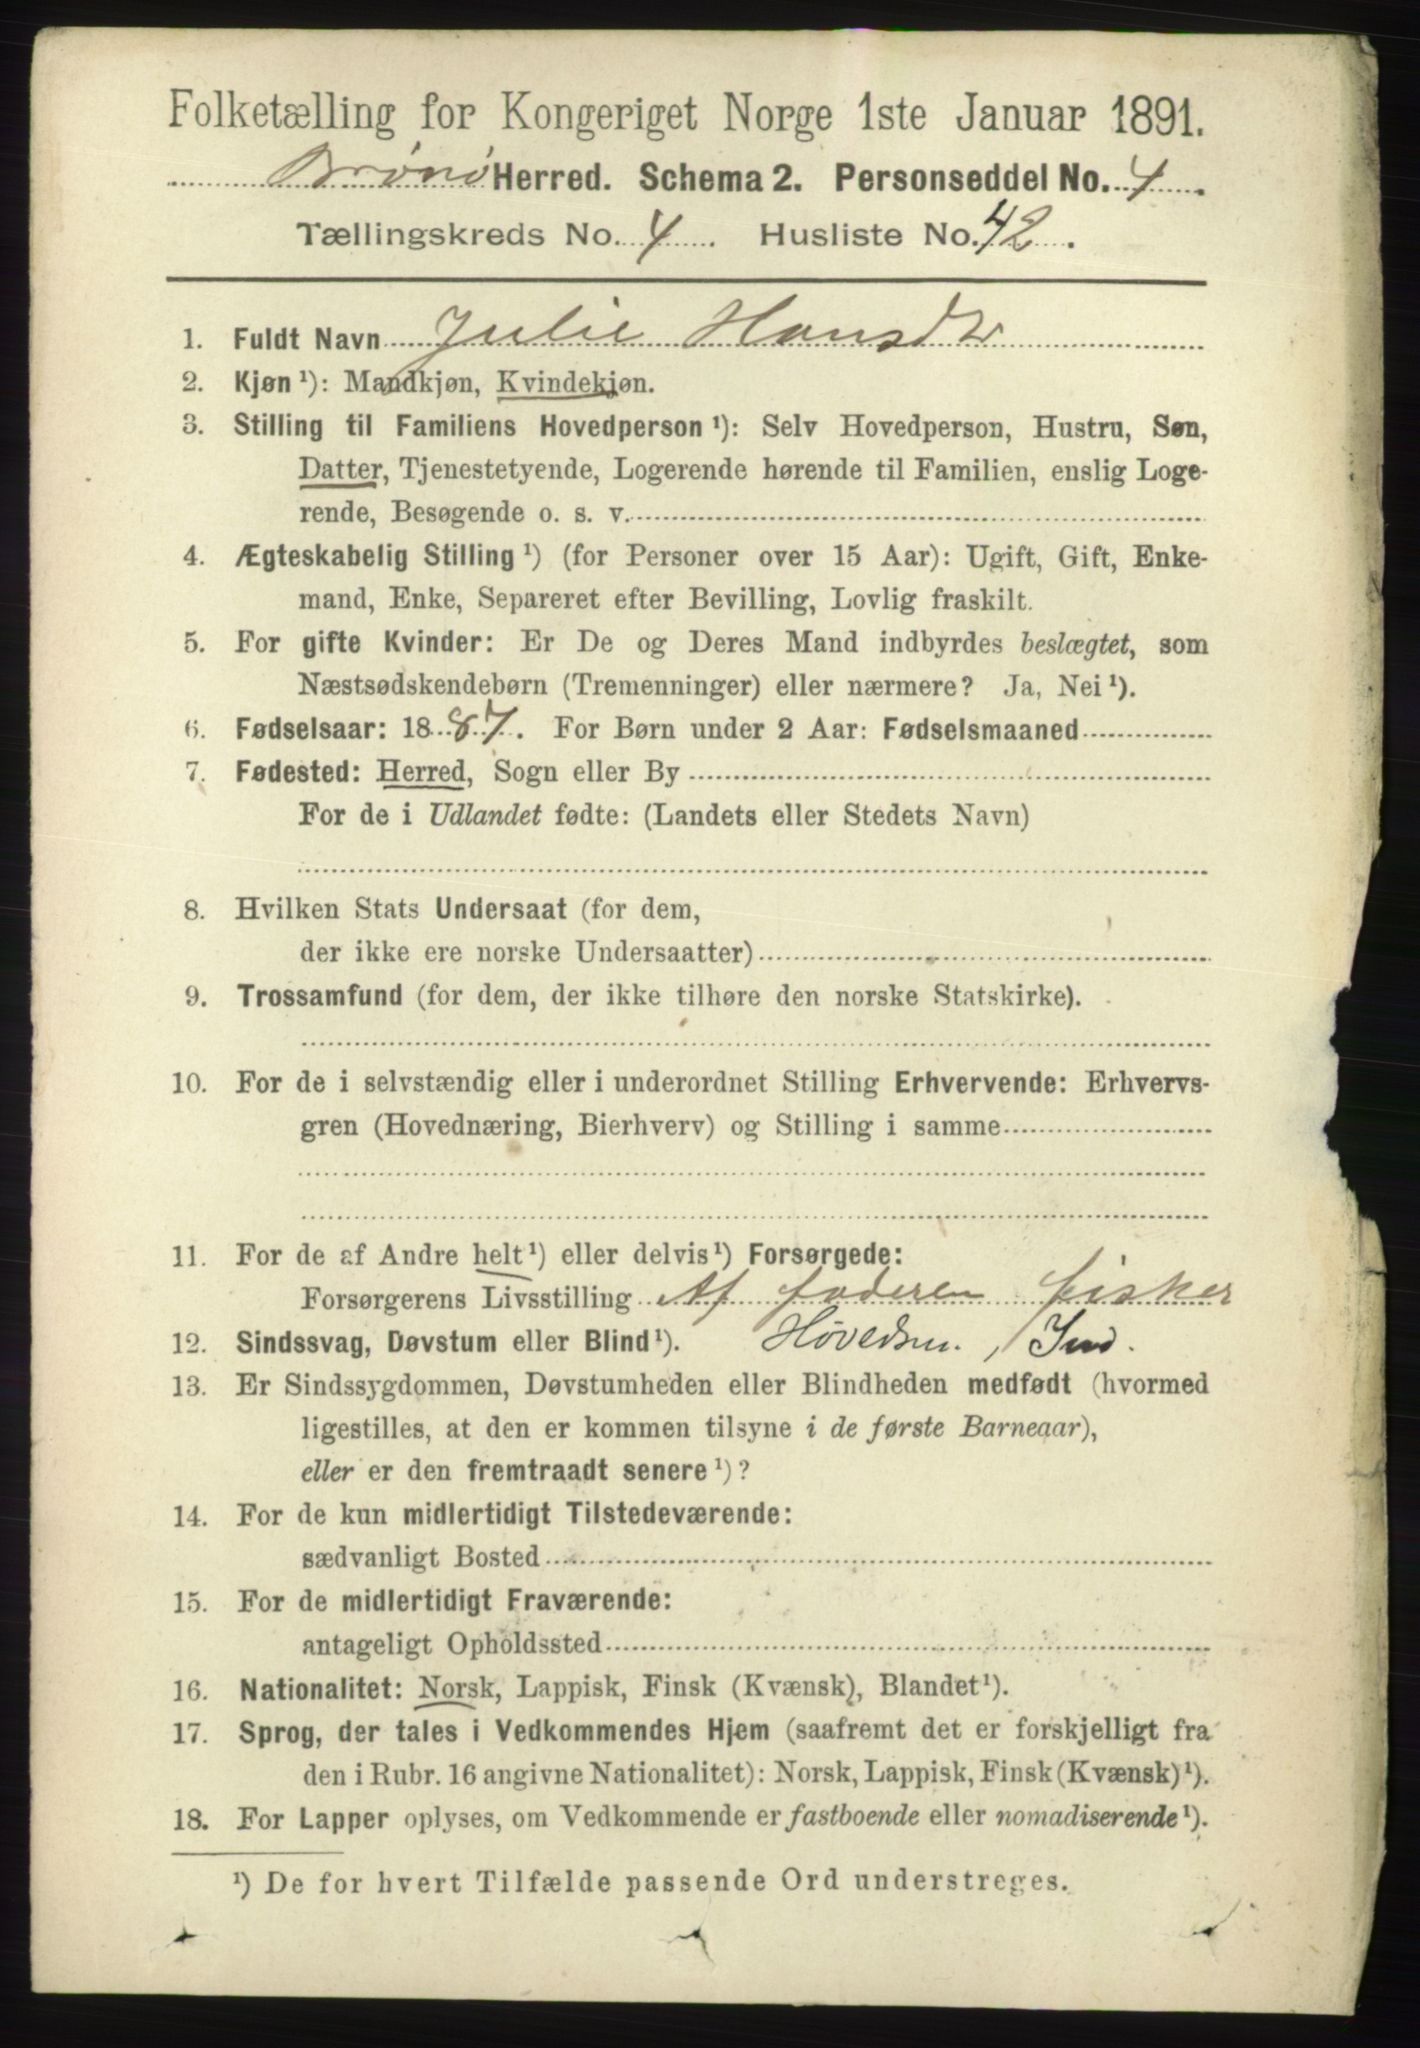 Folketælling for Kongeriget Norge 1ste Januar 1891.
Brønø Herred. Schema 2. Personseddel No. 4.
Tællingskreds No. 4. Husliste No. 42.
1. Fuldt Navn Julie Hansdtr
2. Kjøn ¹): Mandkjøn, Kvindekjøn.
3. Stilling til Familiens Hovedperson ¹): Selv Hovedperson, Hustru, Søn,
Datter, Tjenestetyende, Logerende hørende til Familien, enslig Loge-
rende, Besøgende o. s. v.
4. Ægteskabelig Stilling ¹) (for Personer over 15 Aar): Ugift, Gift, Enke-
mand, Enke, Separeret efter Bevilling, Lovlig fraskilt.
5. For gifte Kvinder: Er De og Deres Mand indbyrdes beslægtet, som
Næstsødskendebørn (Tremenninger) eller nærmere? Ja, Nei ¹).
6. Fødselsaar: 1887. For Børn under 2 Aar: Fødselsmaaned
7. Fødested: Herred, Sogn eller By
For de i Udlandet fødte: (Landets eller Stedets Navn)
8. Hvilken Stats Undersaat (for dem,
der ikke ere norske Undersaatter)
9. Trossamfund (for dem, der ikke tilhøre den norske Statskirke).
10. For de i selvstændig eller i underordnet Stilling Erhvervende: Erhvervs-
gren (Hovednæring, Bierhverv) og Stilling i samme
11. For de af Andre helt ¹) eller delvis ¹) Forsørgede:
Forsørgerens Livsstilling Af faderen fisker
12. Sindssvag, Døvstum eller Blind ¹). ,
13. Er Sindssygdommen, Døvstumheden eller Blindheden medfødt (hvormed
ligestilles, at den er kommen tilsyne i de første Barneaar),
eller er den fremtraadt senere ¹)?
14. For de kun midlertidigt Tilstedeværende:
sædvanligt Bosted
15. For de midlertidigt Fraværende:
antageligt Opholdssted
16. Nationalitet: Norsk, Lappisk, Finsk (Kvænsk), Blandet ¹).
17. Sprog, der tales i Vedkommendes Hjem (saafremt det er forskjelligt fra
den i Rubr. 16 angivne Nationalitet): Norsk, Lappisk, Finsk (Kvænsk) ¹).
18. For Lapper oplyses, om Vedkommende er fastboende eller nomadiserende ¹).
¹) De for hvert Tilfælde passende Ord understreges.